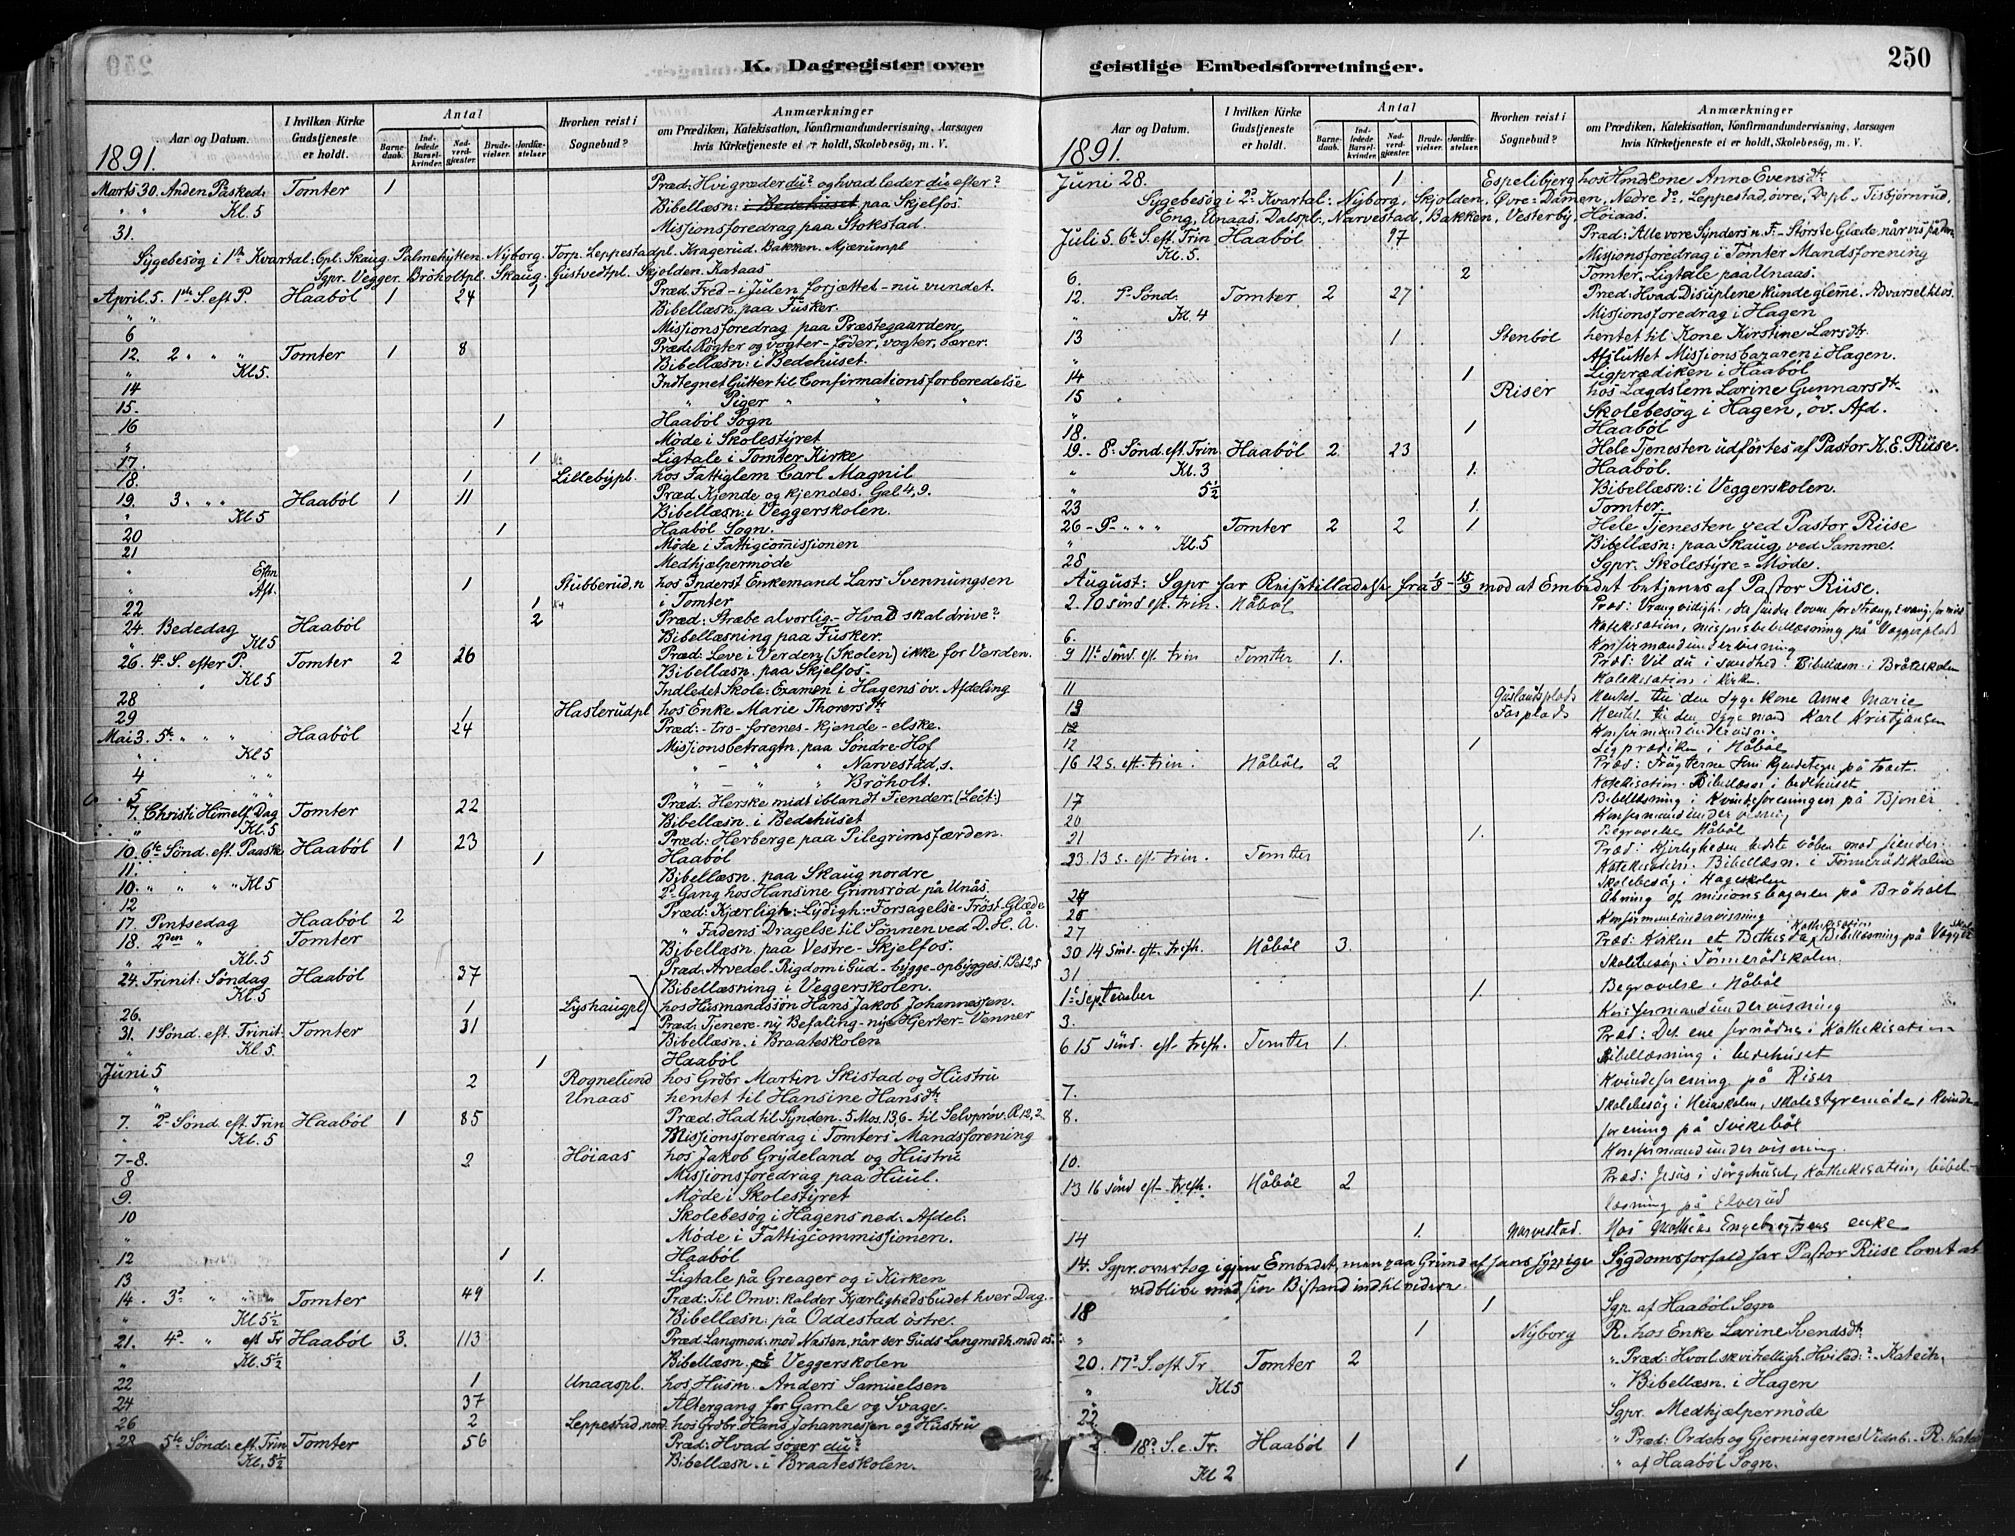 250
K. Dagregister over geistlige Embedsforretninger.
Aar og Datum. I hvilken Kirke Gudstjeneste er holdt. Antal Barnedaab. Indledede Barselkvinder. Nadverdgjæster Brudevielser. Jordfæstelser Hvorhen reist i Sognebud? Anmærkninger om Prædiken, Katekisation, Konfirmandundervisning, Aarsagen hvis Kirketjeneste ei er holdt, Skolebesøg, m. V.
1891.
Marts 30. Anden Paasked. Tomter 1 Præd: Hvi græder du? og hvad leder du efter?
" " Kl. 5 Bibellæsn: i Bedehuset paa Skjelfos.
31. Missionsforedrag paa Stokstad.
Sygebesøg i 1ste Kvartal: Spl. Skaug. Palmehytten. Nyborg. Torp. Leppestadpl. Kragerud. Bakken. Mjærumpl
Sgpr. Vegger. Bröholtpl. Skaug. Gustvedtpl. Skjolden. Kataas
April 5. 1ste S. eft P. Haaböl 1 24 1 Præd. Fred - i Julen forjættet - nu vundet.
" " Bibellæsn. paa Fusker.
6 Missionsforedrag paa Præstegaarden,
12. 2 " " " Tomter 1 8 Præd: Røgter og vogter - föder, vogter, bærer.
" Kl 5. Bibellæsn: i Bedehuset.
14 Indtegnet Gutter til Confirmationsforberedelse
15. " Piger " " "
16 1 Haaböl Sogn
" Møde i Skolestyret
17. 1 Ligtale i Tomter Kirke
18. 1 Lillebypl. hos Fattiglem Carl Magnil
19. 3 " " " Haaböl 1 11 Præd. Kjende og kjendes. Gal. 4, 9.
" Kl 5 Bibellæsn: i Veggerskolen.
20 1 Haaböl Sogn.
21 Møde i Fattigcommissionen
" Eftm Medhjælpermøde
" Aft. 1 Stubberud. n hos Inderst Enkemand Lars Svennungsen
22 1 i Tomter
24. Bededag Haaböl 2 Præd: Stræbe alvorlig - Hvad skal drive?
" Kl 5 Bibellæsning paa Fusker.
26. 4de S. efter P. Tomter 2 26 Præd: Leve i Verden (Skolen) ikke for Verden.
" Kl 5 Bibellæsn. paa Skjelfos.
28 Indledet Skole: Examen i Hagens öv. Afdeling
29 1 Haslerudpl hos Enke Marie Thorersdtr
Mai 3. 5te " " " Haaböl 24 Præd: - tro - forenes - kjende - elske.
" Kl 5 Missionsbetragtn. paa Søndre Hof
4 " " " - " " Narvestad, s.
5 " " " - " " Bröholt.
7. Christi Himmelf. Dag Tomter 22 Præd: Herske midt iblandt Fiender. (Lect:)
" Kl. 5 Bibellæsn. i Bedehuset
10. 6te Sønd. eft. Paaske Haaböl 1 23 Præd: Herberge paa Pilegrimsfærden.
11. 1 Haaböl
10. " " " " Kl 5 Bibellæsn. paa Skaug nordre
12 2. Gang hos Hansine Grimsröd på Unås.
17. Pintsedag Haaböl 2 Præd: Kjærligh: Lydigh: Forsagelse - Tröst. Glæde
18. 2den " Tomter " Fadens Dragelse til Sønnen ved D. H. Å.
" Kl. 5 Bibellæsn. paa Vestre - Skjelfos.
24. Trinit: Søndag Haaböl 37 Præd: Arvedel. Rigdom i Gud - bygge - opbygges. 1 Pet 2,5
Kl. 5 Bibellæsning i Veggerskolen.
26. 1 Lyshaugpl hos Husmandssøn Hans Jakob Johannessen.
31. 1 Sönd. eft. Trinit. Tomter 31 Præd: Tjenere - ny Befaling - nye Hjerter - Venner
" Kl. 5. Bibellæsn. i Braateskolen
Juni 5 1 Haaböl
" 2 Rognelund hos Grdbr Martin Skistad og Hustru
Unaas hentet til Hansine Hansdtr
7. 2. Sønd. eft. Trin Haaböl 1 85 Præd: Had til Synden. 5 Mos. 13,6 - til Selvprøv. R. 12, 2
" Kl. 5 Missionsforedrag i Tomters Mandsforening
7-8. 2 Höiaas hos Jakob Grydeland og Hustru
8 Missionsforedrag paa Huul.
9. Møde i Skolestyret
10 Skolebesøg i Hagens ned: Afdel:
" Møde i Fattigcommissionen.
12 1 Haaböl
13 1. Ligtale på Greager og i Kirken
14. 3d " " " Tomter 49 Præd: Til Omv: kalder Kjærlighedsbudet hver Dag.
" Kl 5½ Bibellæsn: på Oddestad östre.
21. 4d " eft Tr Haaböl 3. 113 Præd. Langmod. mod Næsten, når ser Guds Langmodh. mod os.
" Kl. 5½ Bibellæsn. på Veggerskolen
22 1 Unaaspl. hos Husm. Anders Samuelsen
24 37 Altergang for Gamle og Svage.
26 2 Leppestad, nord. hos Grdbr. Hans Johannessen og Hustru
28 5te Sønd: eft. Trin Tomter 56 Præd: Hvad søger du?
Kl. 5½ Bibellæsn. i Braateskolen.
Aar og Datum. I hvilken Kirke Gudstjeneste er holdt. Antal Barnedaab. Indledede Barselkvinder. Nadverdgjæster. Brudevielser. Jordfæstelser. Hvorhen reist i Sognebud? Anmærkninger om Prædiken, Katekisation, Konfirmandundervisning, Aarsagen hvis Kirketjeneste ei er holdt, Skolebesøg, m. V.
1891.
Juni 28. 1 Espelibjerg hos Hmdkone Anne Evensdtr
Sygebesøg i 2d Kvartal: Nyborg, Skjolden, Øvre-Dammen, Nedre do, Leppestad, övre, Do pl, Tisbjörnrud,
Eng, Unaas. Dalspl. Narvestad, Bakken, Vesterby, Höiaas.
Juli 5. 6te S. eft Trin Haaböl 27 Præd: Alle vore Synders n. F. - Störste Glæde, når vis på den
Kl. 5. Missionsforedrag i Tomter Mandsforening
6. 2 Tomter. Ligtale paa Unaas.
12. 7. Sönd. Tomter 2 27 Præd: Hvad Disciplene kunde glemme. Advarsel t. os.
" Kl. 4 Missionsforedrag i Hagen
13 1 Stenböl hentet til Kone Kirstine Larsdtr
" Afsluttet Missionsbazaren i Hagen.
14 1 Ligprædiken i Haaböl
15 Riser hos Lægdslem Larine Gunnarsdtr
" Skolebesøg i Hagen, öv. Afd.
18. 1 Haaböl
19. 8. Sönd. eft. Trin Haaböl 2 23 Hele Tjenesten udførtes af Pastor K. E. Riise.
" Kl. 3 1. Haaböl.
" 5½ Bibellæsn: i Veggerskolen.
23 1. Tomter.
26 9. " " " Tomter 2 2 1 Hele Tjenesten ved Pastor Riise
" Kl. 5 Bibellæsn: paa Skaug ved Samme.
28 Sgpr. Skolestyre = Møde.
August: Sgpr har Reisetilladelse fra 1/8 - 15/9 mod at Embedet betjenes af Pastor Riise.
2. 10 sönd. eft. trin. Håböl
Katekisation, missionsbibellæsning på Veggerplads
6. Konfirmandundervisning
9 11te sönd. eft. trin Tomter 1. Præd: Vil du i sandhed. Bibellæsn. i Bråteskolen
Katekisation i kirk.
11 Hentet til den syge kone Anne Marie
13 Hentet til den syge mand Karl Kristjansen
12 Konfirmandundervisn.
12 1 Ligprædiken i Håböl
16 12 s. eft. trin. Håböl 2 Præd: Frugterne som kjendetegn på træet.
Katekisation. Bibellæsn i bedehuset
17 Bibellæsning i kvindeforeningen på Bjöner
20 Konfirmandundervisning
21 1. Begravelse Håböl
23. 13 s. eft. trin. Tomter Præd: Kjærligheden bedste våben mod fiender.
Katekisation. Bibellæsn. i Tömmeråsskolen
24 Skolebesøg i Hageskolen
25 Åbning af missionsbazaren på Bröholt
27 Konfirmandundervisning
30 14 sönd. eft. trefh. Håböl 3. Præd: Kirken et Bethesda. Kathekisation Bibellæsning på Vegger Skole
31 Skolebesøg i Tömmeråsskolen.
1te september 1. Begravelse i Håböl
3. Konfirmandundervisning
6 15 sönd. eft. trefh. Tomter 1. Præd: Det ene fornödne. Kathekisation
Bibellæsning i bedehuset
7. Kvindeforening på Riser
8. Skolebesøg i Heiaskolen, skolestyremöde, kvinde-
forening på Svikeböl
10. Konfirmandundervisning.
13 16 sönd eft trefh. Håböl 2 Præd: Jesus i sørgehuset, Kathekisation, bibel-
læsning på Elverud
14 1. Narvestad. Hos Mathias Engebregtsens enke
14. Sgpr. overtog igjen Embedet, men paa Grund af hans hyppige Sygdomsforfald har Pastor Riise lovet at
vedblive med sin Bistand indtil videre.
18 1 Sgp. af Haaböl Sogn
" 1 Nyborg R. hos Enke Larine Svendsdtr
20. 17d S. eft. Tr Tomter 2 " Præd: Hvorl. skv. helligh. Hviled:? - Katech.
" Kl 5 " Bibellæsn. i Hagen
22 Sgpr. Medhjælpermøde
18d S. e. Tr. Haaböl 1 " Præd: Ordets og Gjerningernes Vidnb. - R. Katech
Kl 2 1 " af Haaböl Sogn.